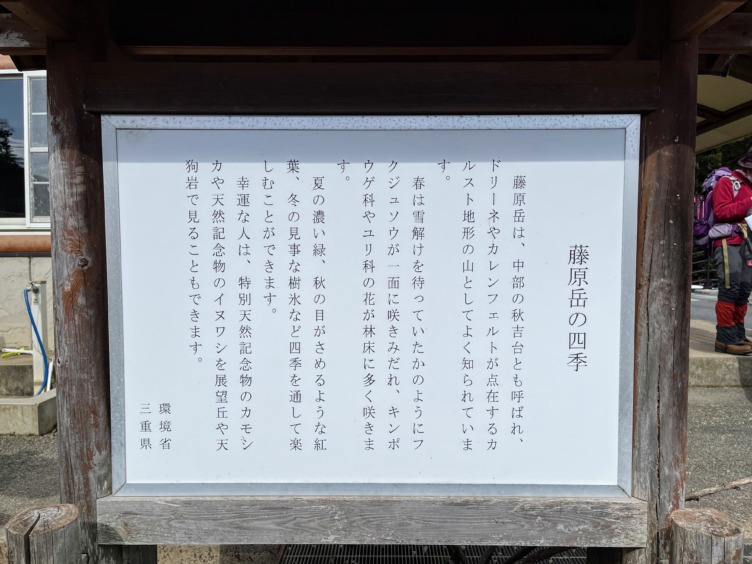 藤原岳の四季
藤原岳は、中部の秋吉台とも呼ばれ、
ドリーネやカレンフェルトが点在するカ
ルスト地形の山としてよく知られていま
す。
春は雪解けを待っていたかのようにフ
クジュソウが一面に咲きみだれ、キンポ
ウゲ科やユリ科の花が林床に多く咲きま
す。
夏の濃い緑、秋の目がさめるような紅
葉、冬の見事な樹氷など四季を通して楽
しむことができます。
幸運な人は、特別天然記念物のカモシ
カや天然記念物のイヌワシを展望丘や天
狗岩で見ることもできます。
環境省
三重県